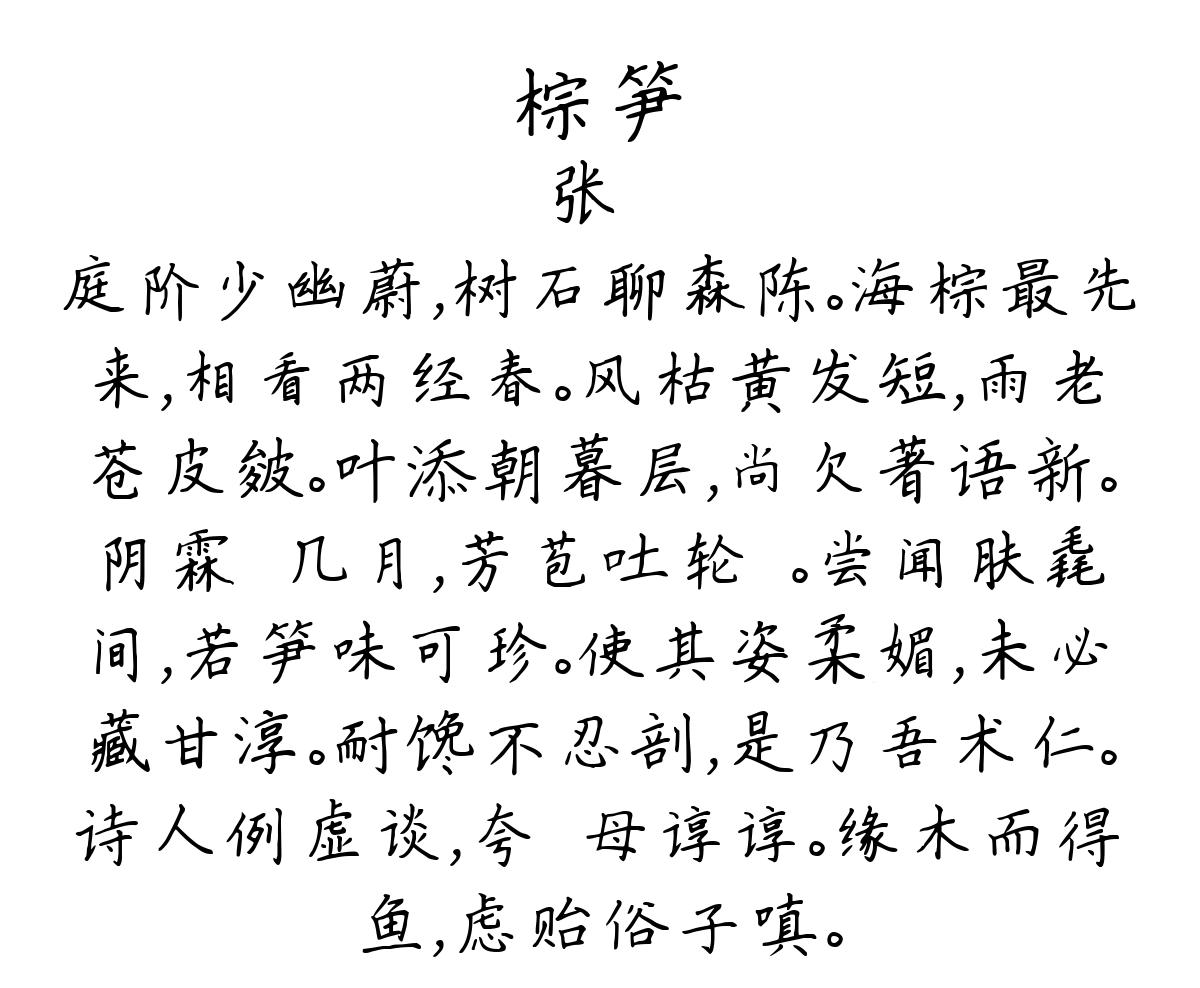 棕笋
张
庭阶少幽蔚,树石聊森陈。海棕最先
来,相看两经春。风枯黄发短,雨老
苍皮皴。叶添朝暮层,尚欠著语新。
阴霖 几月,芳苞吐轮 。尝闻肤毳
间,若笋味可珍。使其姿柔媚,未必
藏甘淳。耐馋不忍剖,是乃吾术仁。
诗人例虚谈,夸 母谆谆。缘木而得
鱼,虑贻俗子嗔。